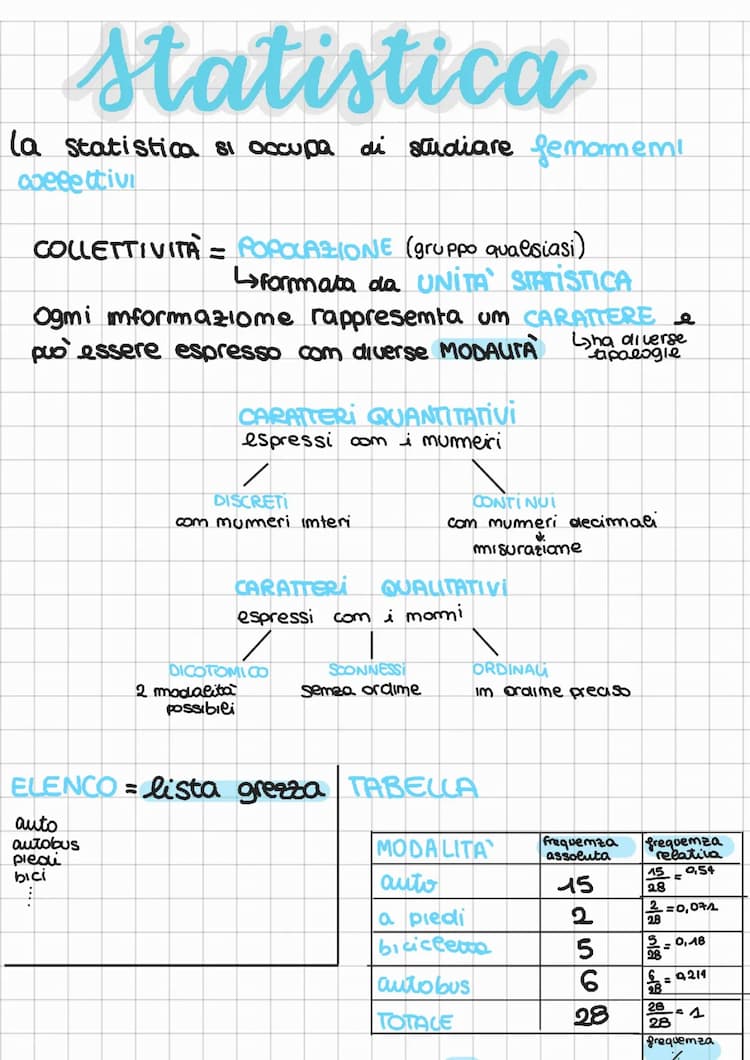 statistica
la statistica si occupa di studiare fenomeni
collettivi
COLLETTIVITÀ = POPOLAZIONE (gruppo qualsiasi)
↳formata da UNITÀ STATISTICA
Ogni informazione rappresenta un CARATTERE e
può essere espresso con diverse MODALITÀ ↳ha diverse
tipologie
CARATTERI QUANTITATIVI
espressi con i numeri
DISCRETI CONTINUI
con numeri interi con numeri decimali
misurazione
CARATTERI QUALITATIVI
espressi con i nomi
DICOTOMICO SCONNESSI ORDINALI
2 modalità senza ordine in ordine preciso
possibili
ELENCO = lista grezza TABELLA
auto
autobus
piedi
bici
⋮
MODALITÀ frequenza assoluta frequenza relativa
auto 15 15/28 = 0,54
a piedi 2 2/28 = 0,071
bicicletta 5 5/28 = 0,18
autobus 6 6/28 = 0,214
TOTALE 28 28/28 = 1
frequenza